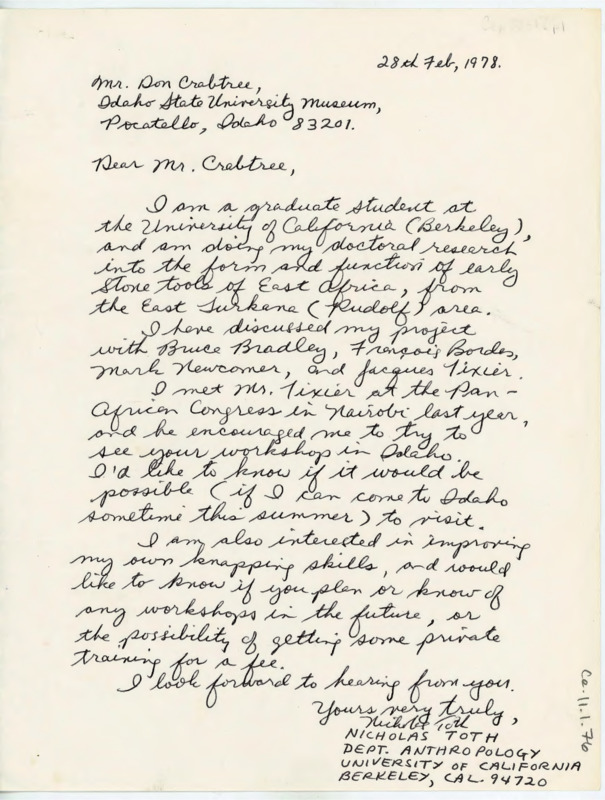 28th Feb, 1978.
Mr. Don Crabtree,
Idaho State University Museum,
Pocatello, Idaho 83201.
Dear Mr. Crabtree,
I am a graduate student at
the University of California (Berkeley),
and am doing my doctoral research
into the form and function of early
Stone tools of East Africa, from
the East Turkana (Rudolf) area.
I have discussed my project
with Bruce Bradley, François Bordes,
Mark Newcomer, and Jacques Tixier.
I met Mr. Tixier at the Pan-
African Congress in Nairobi last year,
and he encouraged me to try to
see your workshop in Idaho.
I'd like to know if it would be
possible (if I can come to Idaho
sometime this summer) to visit.
I am also interested in improving
my own knapping skills, and would
like to know if you plan or know of
any workshops in the future, or
the possibility of getting some private
training for a fee.
I look forward to hearing from you.
Yours very truly,
Nicholas Toth
NICHOLAS TOTH
DEPT. ANTHROPOLOGY
UNIVERSITY OF CALIFORNIA
BERKELEY, CAL. 94720
Ca-11.1.76